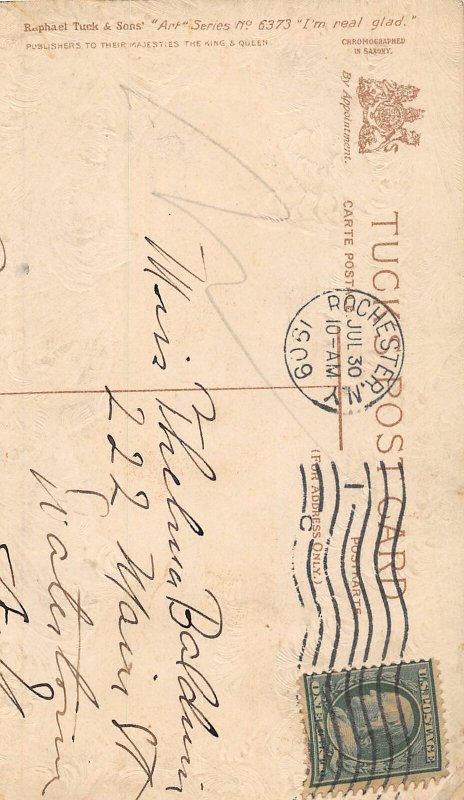 Raphael Tuck & Sons' "Art" Series No 6373 "I'm real glad."
PUBLISHERS TO THEIR MAJESTIES THE KING & QUEEN
CHROMOGRAPHED
IN SAXONY.
By Appointment.
TUCK'S POST CARD
CARTE POSTALE
POSTKARTE
(FOR ADDRESS ONLY.)
ROCHESTER, N.Y.
JUL 30
10-AM
1909
U.S. POSTAGE
ONE CENT
Miss Thelma Baldwin
222 Main St
Watertown